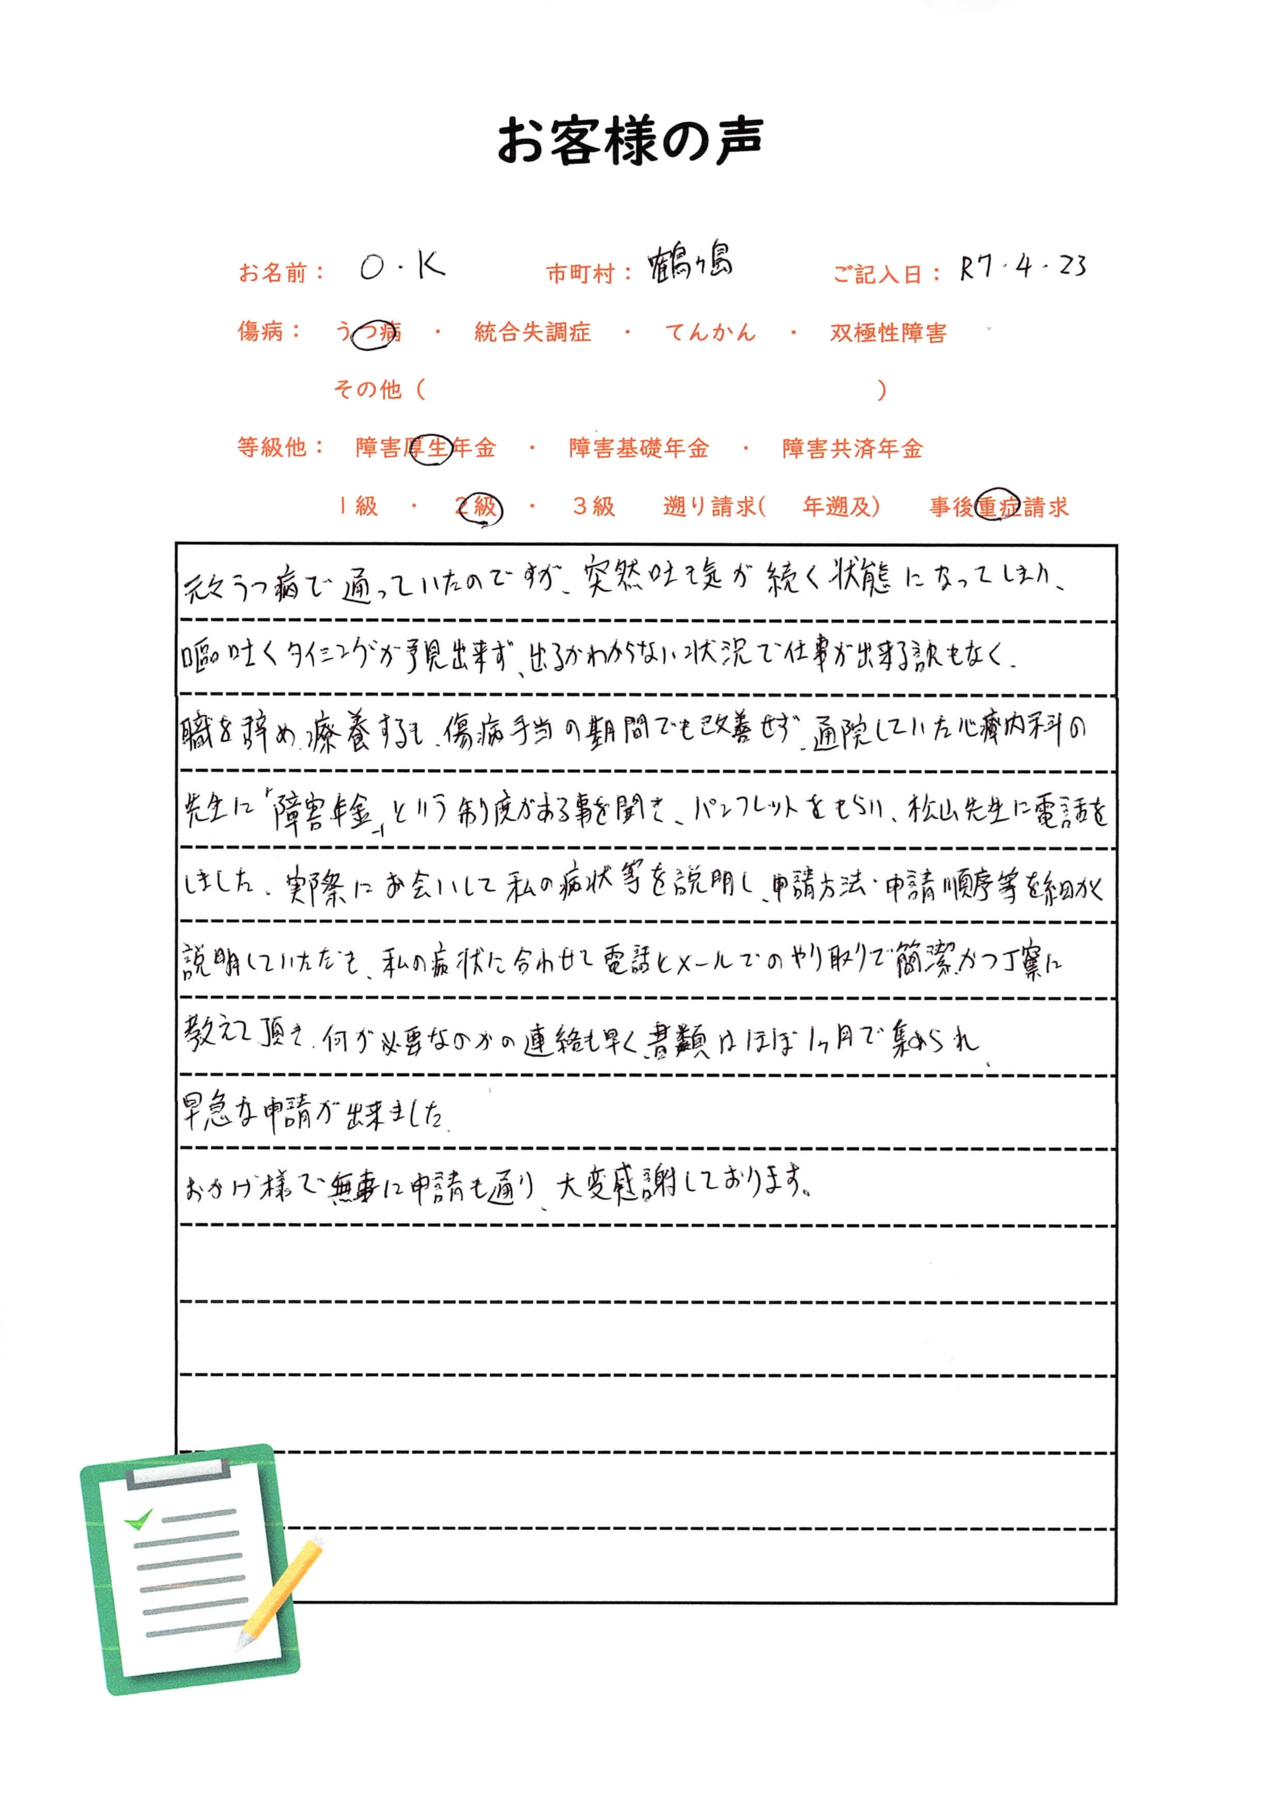 お客様の声
お名前： O・K 市町村： 鶴ヶ島 ご記入日： R7・4・23
傷病： うつ病 ・ 統合失調症 ・ てんかん ・ 双極性障害
その他（ ）
等級他： 障害厚生年金 ・ 障害基礎年金 ・ 障害共済年金
1級 ・ 2級 ・ 3級 遡り請求( 年遡及) 事後重症請求
元々うつ病で通っていたのですが、突然吐き気が続く状態になってしまい、
嘔吐くタイミングが予見出来ず、出るかわからない状況で仕事が出来る訳もなく、
職を辞め、療養するも、傷病手当の期間でも改善せず、通院していた心療内科の
先生に「障害年金」という制度がある事を聞き、パンフレットをもらい、松山先生に電話を
しました。実際にお会いして私の病状等を説明し、申請方法・申請順序等を細かく
説明していただき、私の病状に合わせて電話とメールでのやり取りで簡潔かつ丁寧に
教えて頂き、何が必要なのかの連絡も早く、書類はほぼ1ヶ月で集められ、
早急な申請が出来ました。
おかげ様で無事に申請も通り、大変感謝しております。